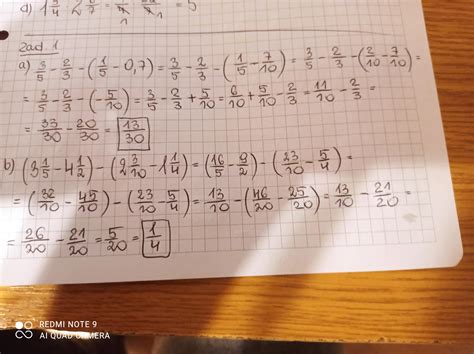 d) 1 3/4 · 2 6/7 = = 5
zad. 1
a) 3/5 - 2/3 - (1/5 - 0,7) = 3/5 - 2/3 - (1/5 - 7/10) = 3/5 - 2/3 - (2/10 - 7/10) =
= 3/5 - 2/3 - (-5/10) = 3/5 - 2/3 + 5/10 = 6/10 + 5/10 - 2/3 = 11/10 - 2/3 =
= 33/30 - 20/30 = 13/30
b) (3 1/5 - 4 1/2) - (2 3/10 - 1 1/4) = (16/5 - 9/2) - (23/10 - 5/4) =
= (32/10 - 45/10) - (23/10 - 5/4) = 13/10 - (46/20 - 25/20) = 13/10 - 21/20 =
= 26/20 - 21/20 = 5/20 = 1/4
REDMI NOTE 9
AI QUAD CAMERA